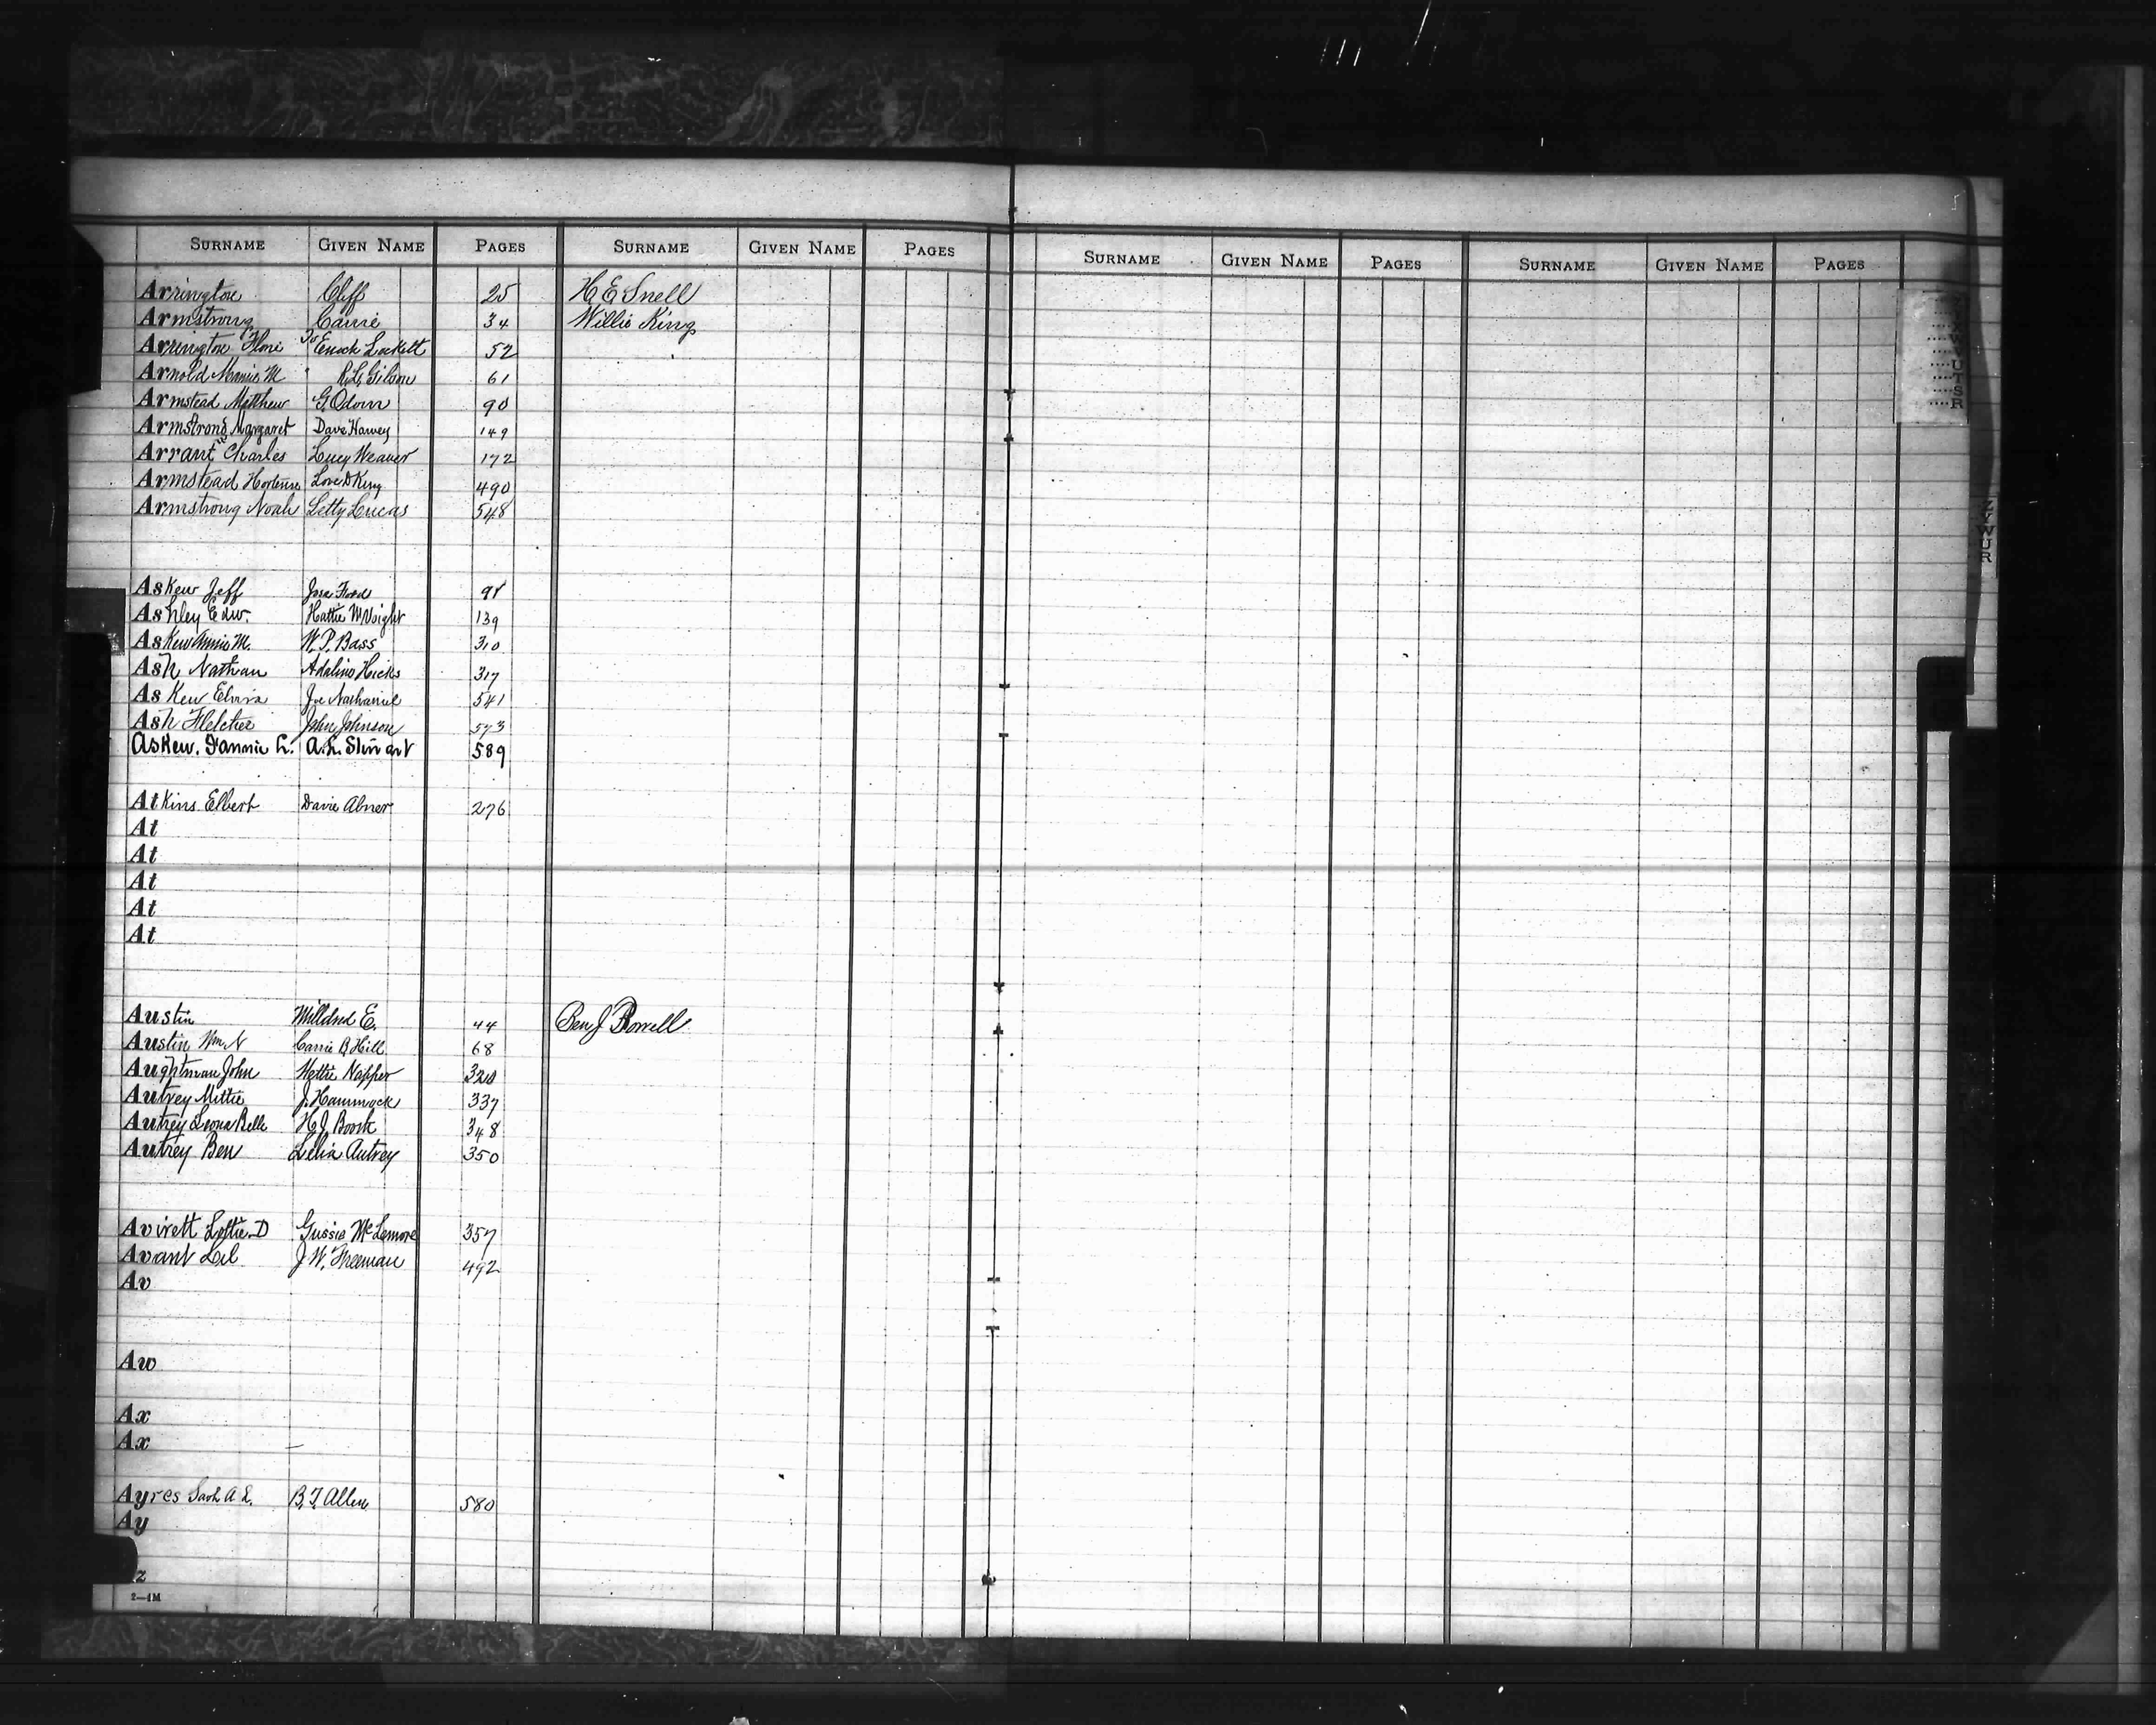 SURNAME GIVEN NAME PAGES SURNAME GIVEN NAME PAGES SURNAME GIVEN NAME PAGES SURNAME GIVEN NAME PAGES
Arrington Cliff 25 H E Snell
Armstrong Carrie 34 Willie King
Arrington Flori To Enock Lockett 52
Arnold Mamie M " R. L. Gibson 61
Armstead Matthew G. Odom 90
Armstrong Margaret Dave Harvey 149
Arrant Charles Lucy Weaver 172
Armstead Hortense Love D King 490
Armstrong Noah Letty Lucas 548
Askew Jeff 98
Ashley Edw. Hattie 139
Askew Annie M. W. P. Bass 310
Ash Nathan Adaline Hicks 317
Askew Elvira Joe Nathaniel 541
Ash Fletcher John Johnson 573
Askew. Fannie L. A. L. 589
Atkins Elbert Davie Abner 276
At
At
At
At
At
Austin Milldred E. 44 Ben J
Austin Wm N Carrie B Hill 68
Aughtman John Hettie Napper 320
Autrey Mittie J. Hammock 337
Autrey Leona Belle H. J. 348
Autrey Ben Lelia Autrey 350
Avirett Lottie D Gussie McLemore 357
Avant Lil J. W. Freeman 492
Av
Aw
Ax
Ax
Ayres A L. B. T. Allen 580
Ay
z
2—1M